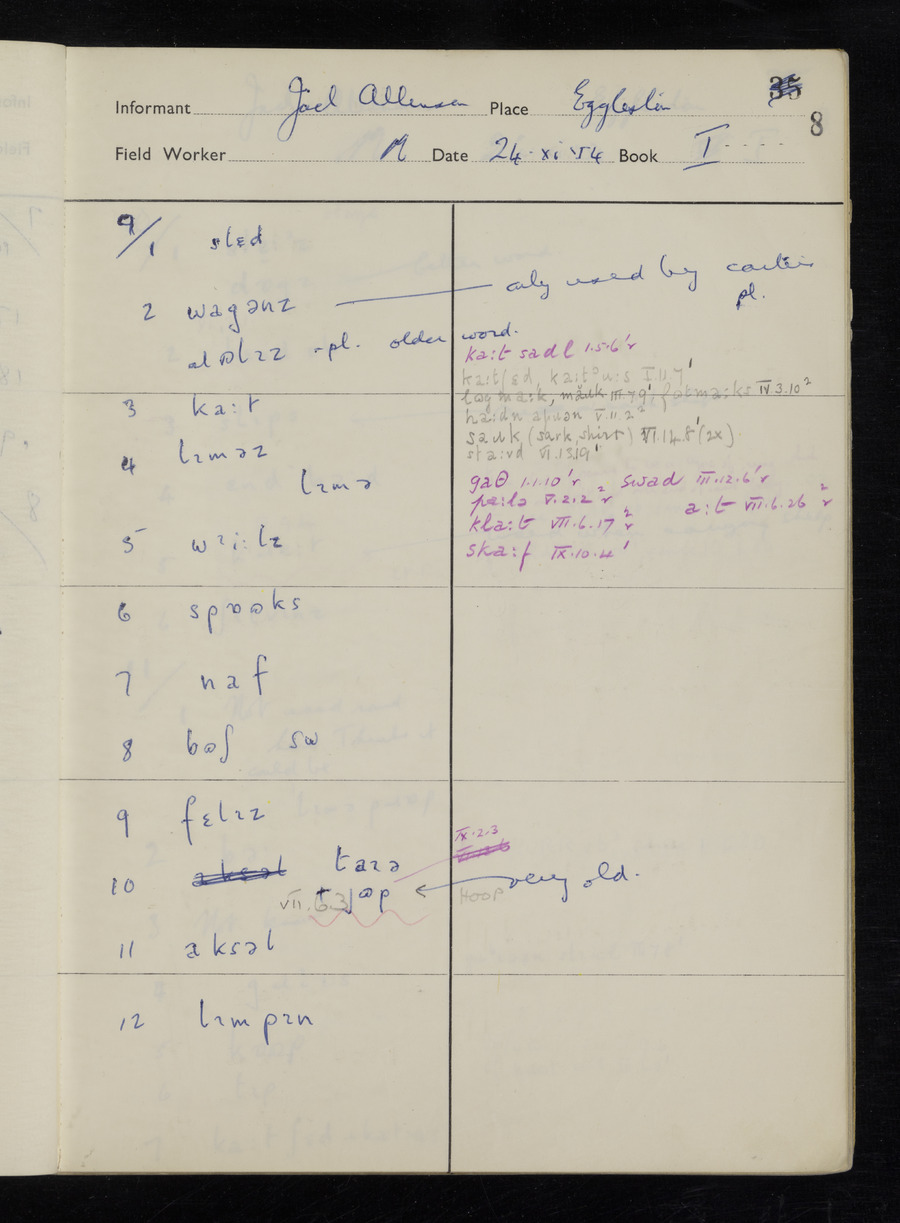 35
Informant Joel Allinson Place Eggleston
8
Field Worker N Date 24·xi·54 Book I
9/1 slɛd
2 wagənz — only used by carters pl.
əlɒlɪz -pl. older word.
ka:t sadl 1.5.6'r
ka:tʃɛd, I.11.7'
III.7.9', fotma:ks IV.3.10²
3 ka:t
ha:dn apɹən V.11.2²
sark, shirt) VI.14.8'(2x)
sta:vd VI.13.19'
4 lɪməz
lɪmə
gaθ 1.1.10'r, swad III.12.6'r
V.2.2²r a:t VII.6.26²r
kla:t VII.6.17²r
5 wɪ:lz
ska:f IX.10.4'
6 spɒʊks
7 naf
8 bʊʃ sʊ
9 fɛlɪz
IX.2.3
10 aksəl taɪə
VII.6.3 jʊp ← very old.
HOOP
11 aksəl
12 lɪmpɪn